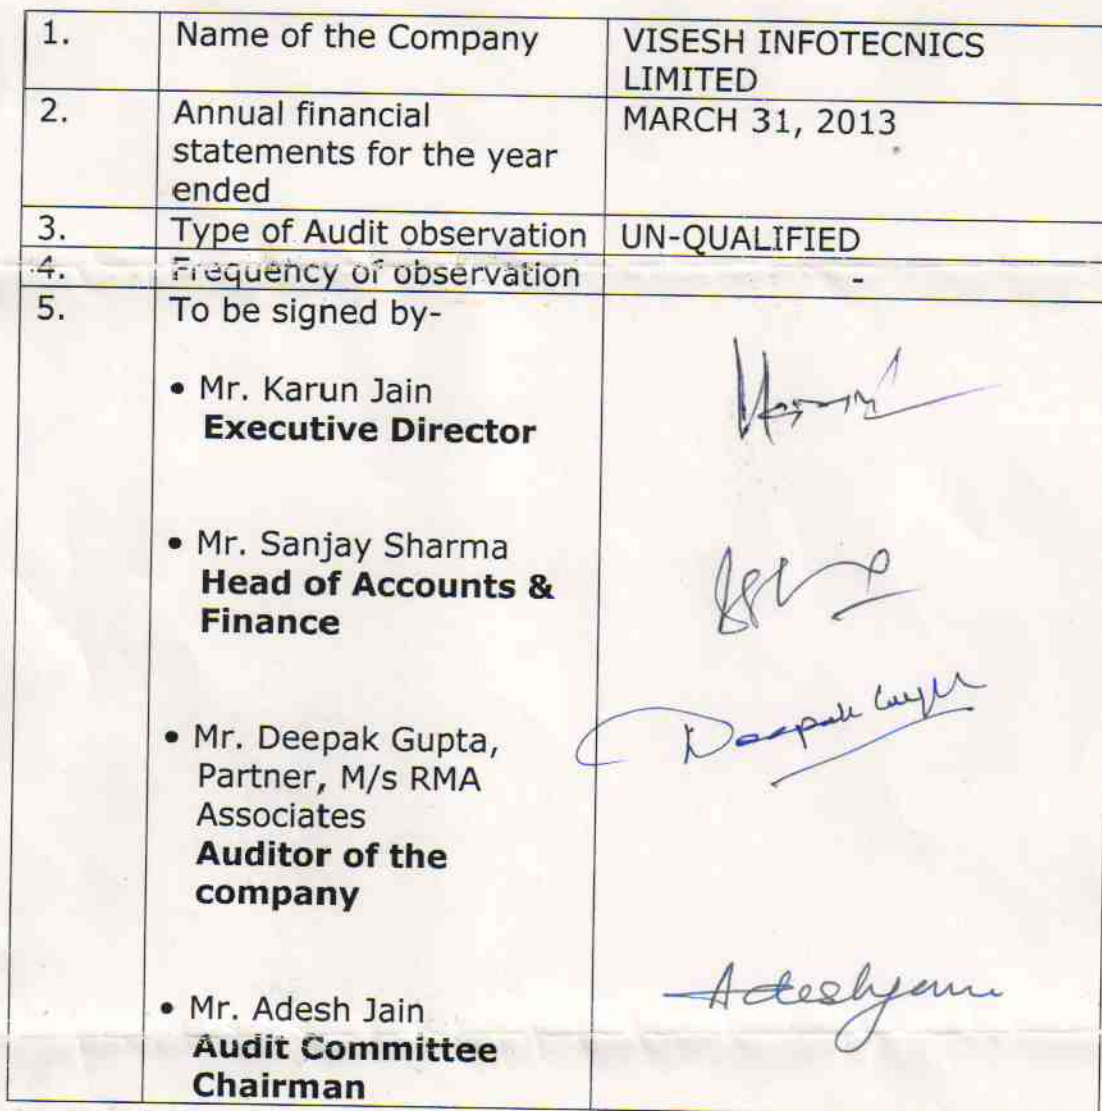 1. Name of the Company VISESH INFOTECNICS
LIMITED
2. Annual financial MARCH 31, 2013
statements for the year
ended
3. Type of Audit observation UN-QUALIFIED
4. Frequency of observation -
5. To be signed by-
• Mr. Karun Jain
Executive Director
• Mr. Sanjay Sharma
Head of Accounts &
Finance
• Mr. Deepak Gupta,
Partner, M/s RMA
Associates
Auditor of the
company
Deepak Gupta
• Mr. Adesh Jain
Audit Committee
Chairman
Adesh Jain